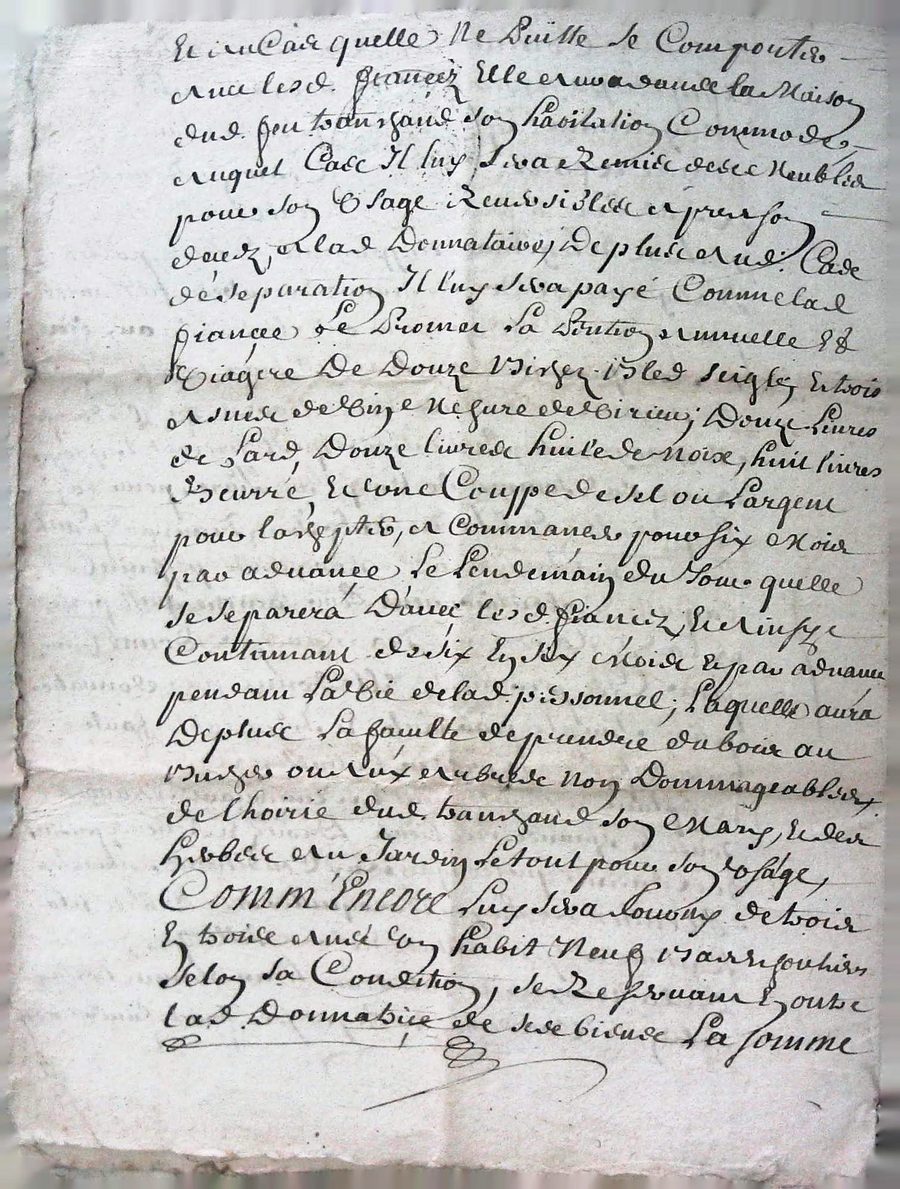 Et au Cas quelle Ne Puisse se Comporter
avec lesd. fiancez Elle aura dans la Maison
dud. feu son habitation Commode
auquel Cas Il luy sera Remis des Meubles
pour son Usage Reversibles apres son
decez, a lad. Donnataire, De plus aud. Cas
de separation Il luy sera payé Comme lad.
fiancée Le Promet La Pention annuelle Et
Viagere De Douze Bled seigle, Et trois
de Vin Mesure de Virieu, Douze Livres
de Lard, Douze livres huille de Noix, huit livres
Beurre, Et une Couppe de sel ou Largent
pour lachepter, a Commancer pour six Mois
par advance Le Lendemain du Jour quelle
se separera D'avec lesd. fiancez, Et ainsy
Continuant de six En six Mois Et par advance
pendant La Vie de lad. pissonnel, Laquelle aura
De plus La faculté de prendre du bois au
Bucher ou aux arbres Non Dommageables
de lhoirie dud. son Mary, Et des
herbes au Jardin Le tout pour son usage,
Comm'Encore Luy sera fourny de trois
En trois ans un habit Neuf
selon sa Condition, se Reservant En outre
lad. Donnatrice de ses biens La somme